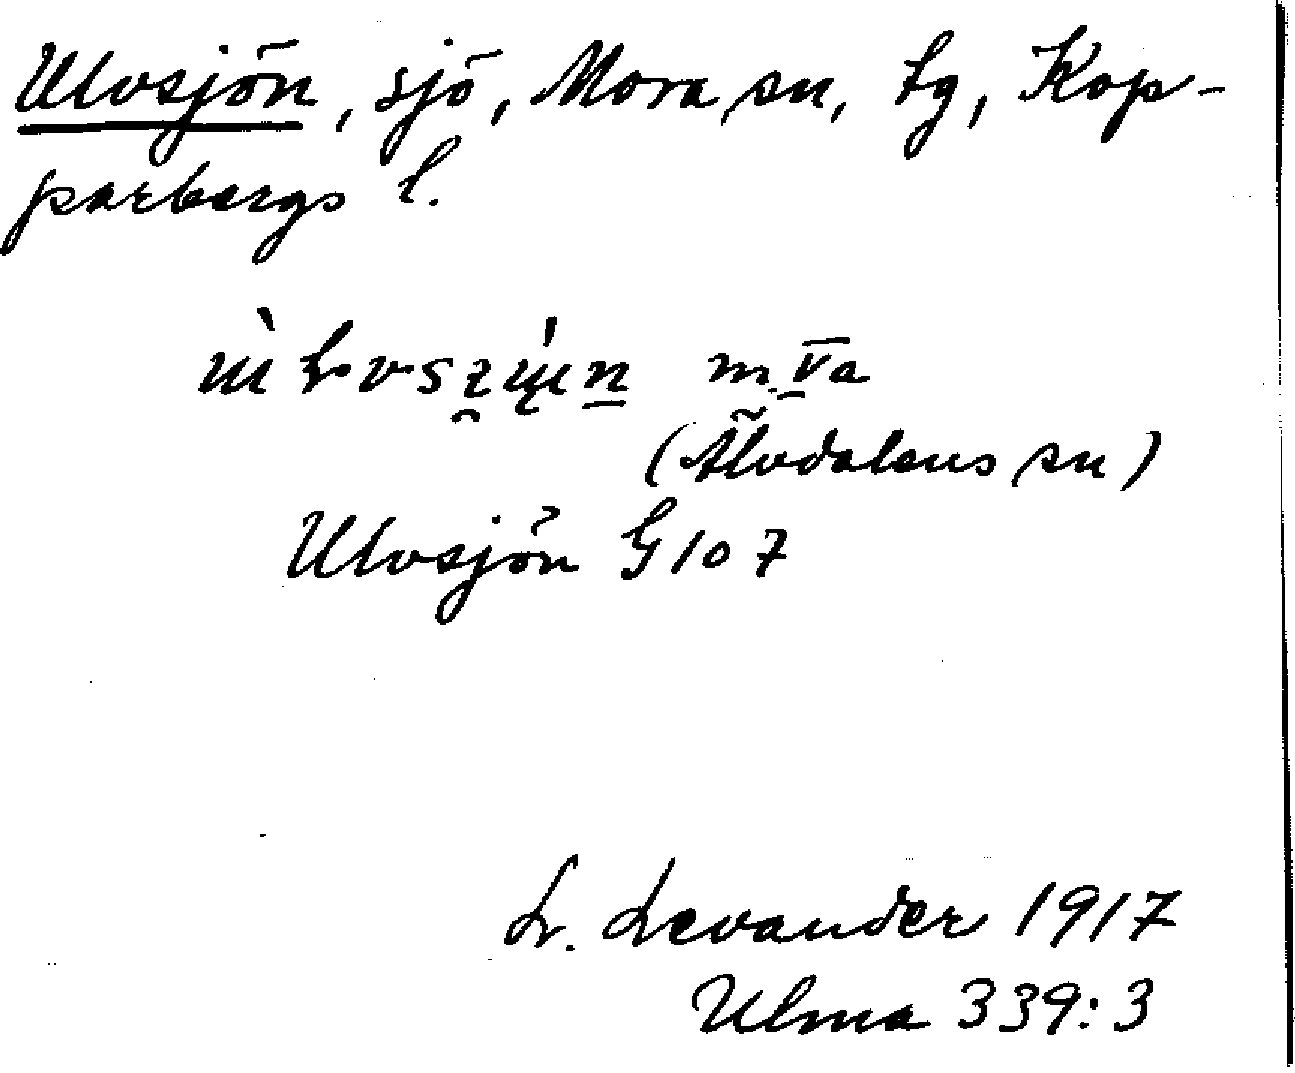 Ulvsjön, sjö, Mora sn, tg, Kop-
parbergs l.
(Älvdalens sn)
Ulvsjön G 107
L. Levander 1917
Ulma 339:3